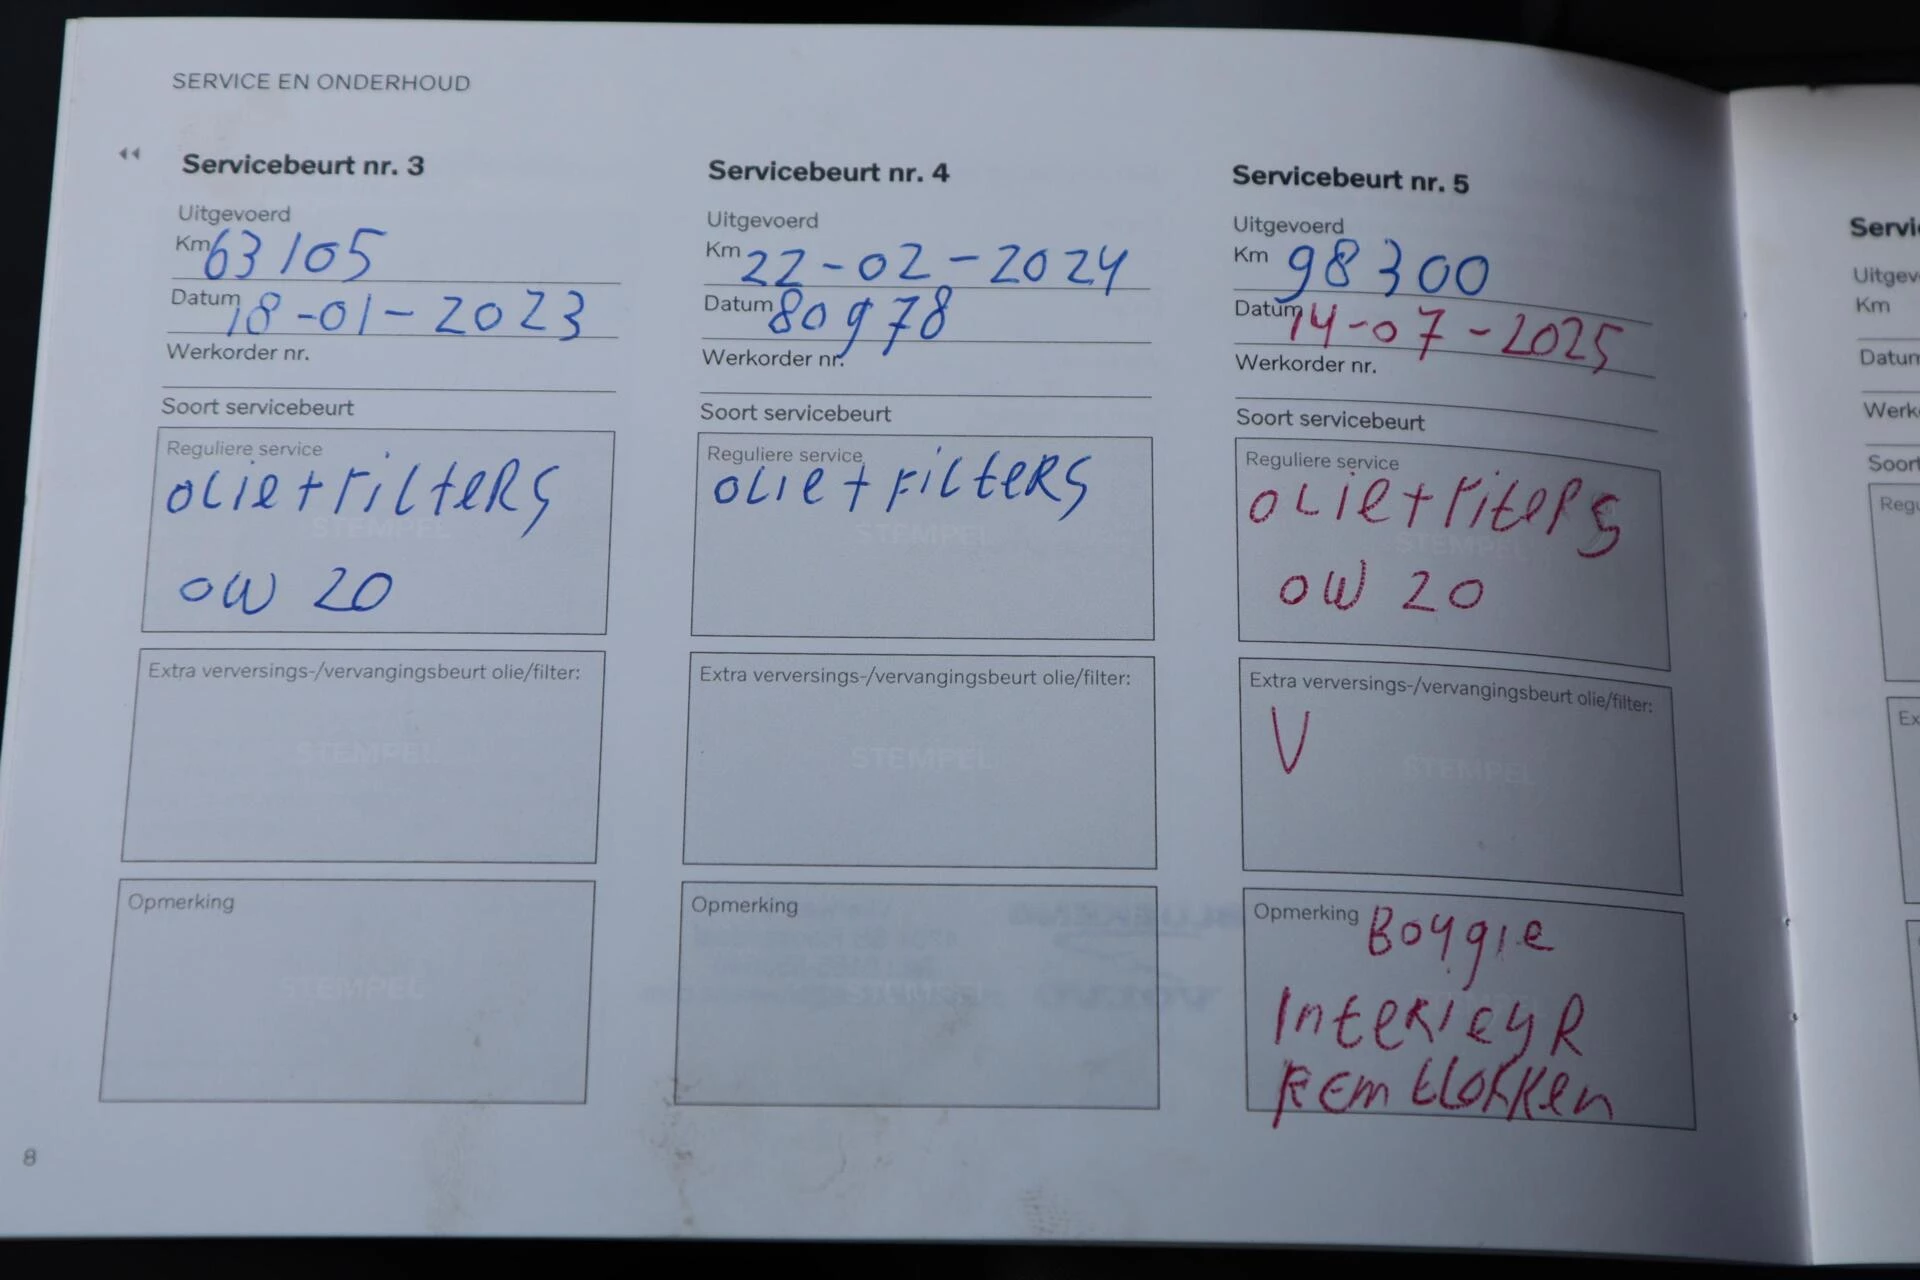 SERVICE EN ONDERHOUD
Servicebeurt nr. 3
Uitgevoerd
Km 63105
Datum 18-01-2023
Werkorder nr.
Soort servicebeurt
Reguliere service
OLie+FiLteRS
STEMPEL
OW 20
Extra verversings-/vervangingsbeurt olie/filter:
STEMPEL
Opmerking
STEMPEL
8
Servicebeurt nr. 4
Uitgevoerd
Km 22-02-2024
Datum 80978
Werkorder nr.
Soort servicebeurt
Reguliere service
OLie+FiLteRS
STEMPEL
Extra verversings-/vervangingsbeurt olie/filter:
STEMPEL
Opmerking
STEMPEL
Servicebeurt nr. 5
Uitgevoerd
Km 98300
Datum 14-07-2025
Werkorder nr.
Soort servicebeurt
Reguliere service
OLie+FiteRS
STEMPEL
OW 20
Extra verversings-/vervangingsbeurt olie/filter:
V
STEMPEL
Opmerking Bougie
InteRieuR
REmbLokken
Servi
Uitgev
Km
Datum
Werko
Soort
Regu
Ex